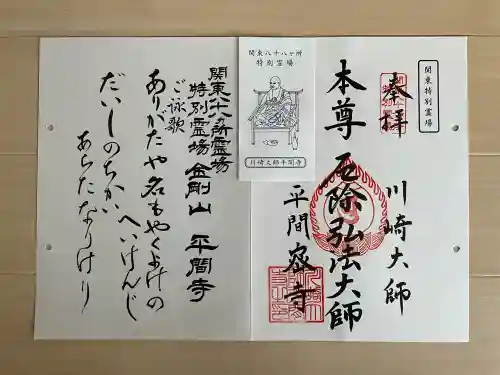 関東特別霊場
奉拝
川崎大師
本尊 厄除弘法大師
平間寺
関東八十八ヶ所
特別霊場
川崎大師平間寺
関東八十八ヶ所霊場
特別霊場 金剛山 平間寺
ご詠歌
ありがたや名もやくよけの
へいけんじ
だいしのちかい
あらたなりけり